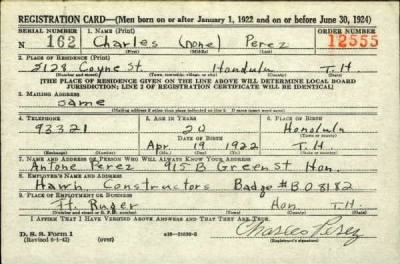 REGISTRATION CARD—(Men born on or after January 1, 1922 and on or before June 30, 1924)
SERIAL NUMBER 1. NAME (Print) ORDER NUMBER
N 162 Charles (none) Perez 12555
(First) (Middle) (Last)
2. PLACE OF RESIDENCE (Print)
3128 Coyne St Honolulu T.H
(Number and street) (Town, township, village, or city) (County) (State)
[THE PLACE OF RESIDENCE GIVEN ON THE LINE ABOVE WILL DETERMINE LOCAL BOARD
JURISDICTION; LINE 2 OF REGISTRATION CERTIFICATE WILL BE IDENTICAL]
3. MAILING ADDRESS
same
[Mailing address if other than place indicated on line 2. If same insert word same]
4. TELEPHONE 5. AGE IN YEARS 6. PLACE OF BIRTH
93321 20 Honolulu
DATE OF BIRTH
Apr 19 1922 T.H
(Mo.) (Day) (Yr.)
7. NAME AND ADDRESS OF PERSON WHO WILL ALWAYS KNOW YOUR ADDRESS
Antone Perez 915 B Green St Hon.
8. EMPLOYER'S NAME AND ADDRESS
Hawn Constructors Badge # B03182
9. PLACE OF EMPLOYMENT OR BUSINESS
Ft. Ruger Hon T.H
I AFFIRM THAT I HAVE VERIFIED ABOVE ANSWERS AND THAT THEY ARE TRUE.
D. S. S. Form 1
(Revised 6-1-42) (over) Charles Perez
(Registrant's signature)